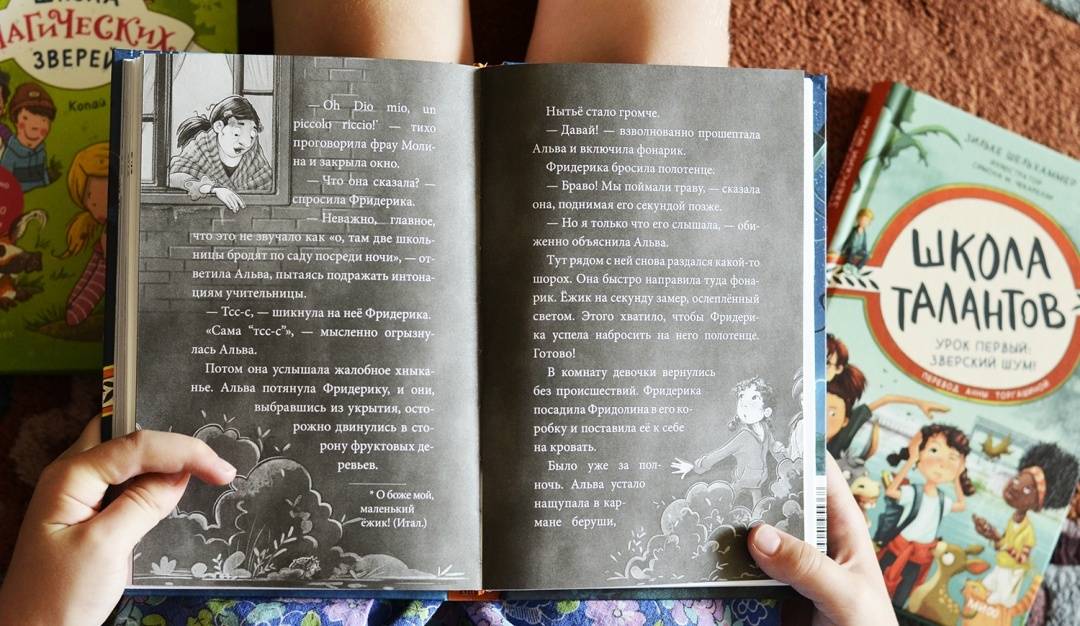 ШКОЛА
МАГИЧЕСКИХ
ЗВЕРЕЙ
Копай
— Oh Dio mio, un
piccolo riccio!* — тихо
проговорила фрау Моли-
на и закрыла окно.
— Что она сказала? —
спросила Фридерика.
— Неважно, главное,
что это не звучало как «о, там две школь-
ницы бродят по саду посреди ночи», — от-
ветила Альва, пытаясь подражать интона-
циям учительницы.
— Тсс-с, — шикнула на неё Фридерика.
«Сама “тсс-с”», — мысленно огрызну-
лась Альва.
Потом она услышала жалобное хныка-
нье. Альва потянула Фридерику, и они,
выбравшись из укрытия, осто-
рожно двинулись в сто-
рону фруктовых де-
ревьев.
* О боже мой,
маленький
ёжик! (Итал.)
Нытьё стало громче.
— Давай! — взволнованно прошептала
Альва и включила фонарик.
Фридерика бросила полотенце.
— Браво! Мы поймали траву, — сказала
она, поднимая его секундой позже.
— Но я только что его слышала, — оби-
женно объяснила Альва.
Тут рядом с ней снова раздался какой-то
шорох. Она быстро направила туда фона-
рик. Ёжик на секунду замер, ослеплённый
светом. Этого хватило, чтобы Фридери-
ка успела набросить на него полотенце.
Готово!
В комнату девочки вернулись
без происшествий. Фридерика
посадила Фридолина в его ко-
робку и поставила её к себе
на кровать.
Было уже за пол-
ночь. Альва устало
нащупала в кар-
мане беруши,
ЗИЛЬКЕ ШЕЛЬХАММЕР
ИЛЛЮСТРАТОР
СИМОНА М. ЧЕККАРЕЛЛИ
ШКОЛА
ТАЛАНТОВ
УРОК ПЕРВЫЙ:
ЗВЕРСКИЙ ШУМ!
ПЕРЕВОД АННЫ ТОРГАШИНОЙ
МИФ